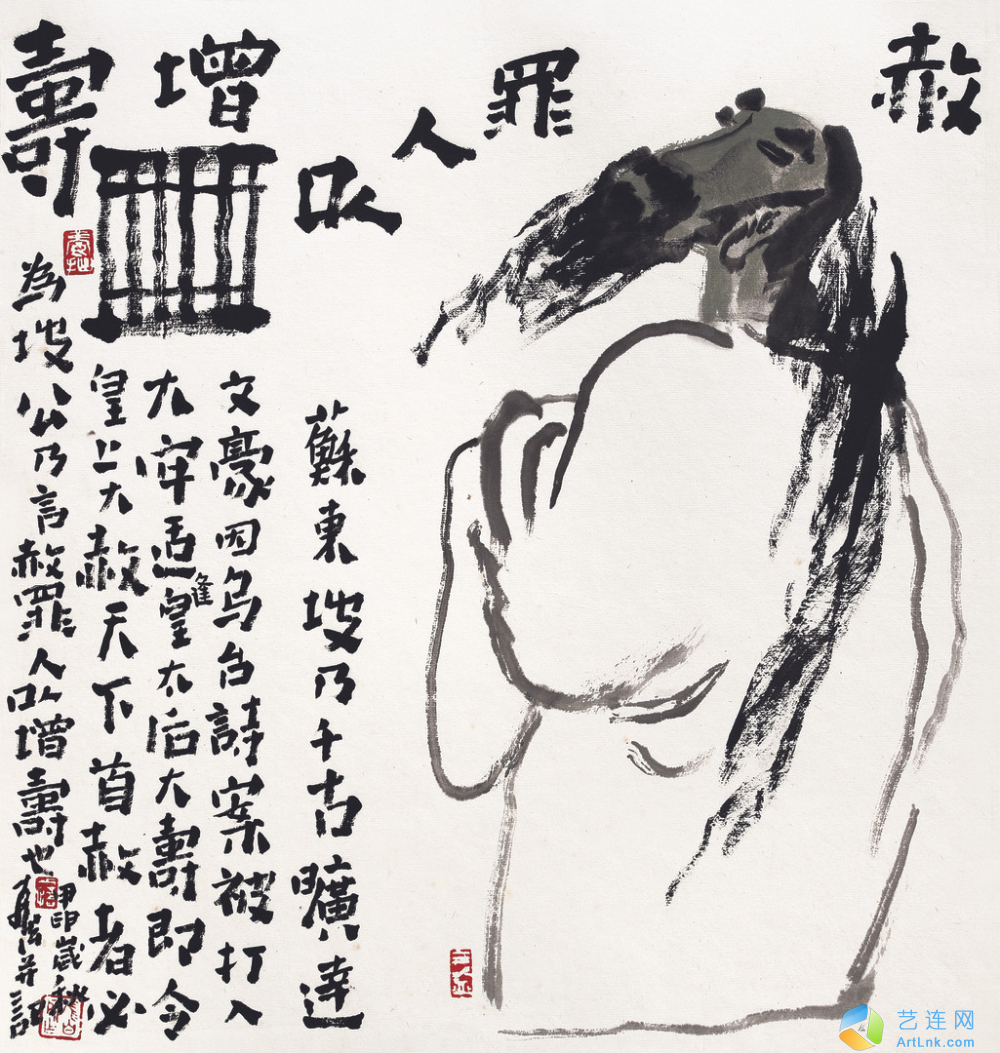 赦罪人以增壽
蘇東坡乃千古曠達
文豪因烏台詩案被打入
大牢适逢皇太后大壽即令
皇上大赦天下首赦者必
為坡公乃言赦罪人以增壽也
歲秋
并記
艺连网
ArtLnk.com